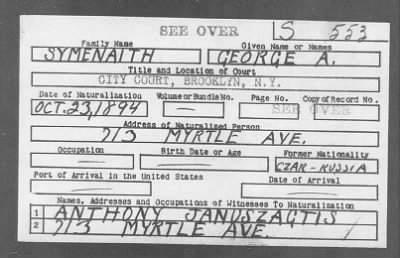 SEE OVER S 553
Family Name Given Name or Names
SYMENAITH GEORGE A.
Title and Location of Court
CITY COURT, BROOKLYN, N.Y.
Date of Naturalization Volume or Bundle No. Page No. Copy of Record No.
OCT. 23, 1894 — SEE OVER
Address of Naturalized Person
713 MYRTLE AVE.
Occupation Birth Date or Age Former Nationality
— — CZAR - RUSSIA
Port of Arrival in the United States Date of Arrival
— —
Names, Addresses and Occupations of Witnesses To Naturalization
1 ANTHONY JANUSZAGTIS
2 713 MYRTLE AVE.